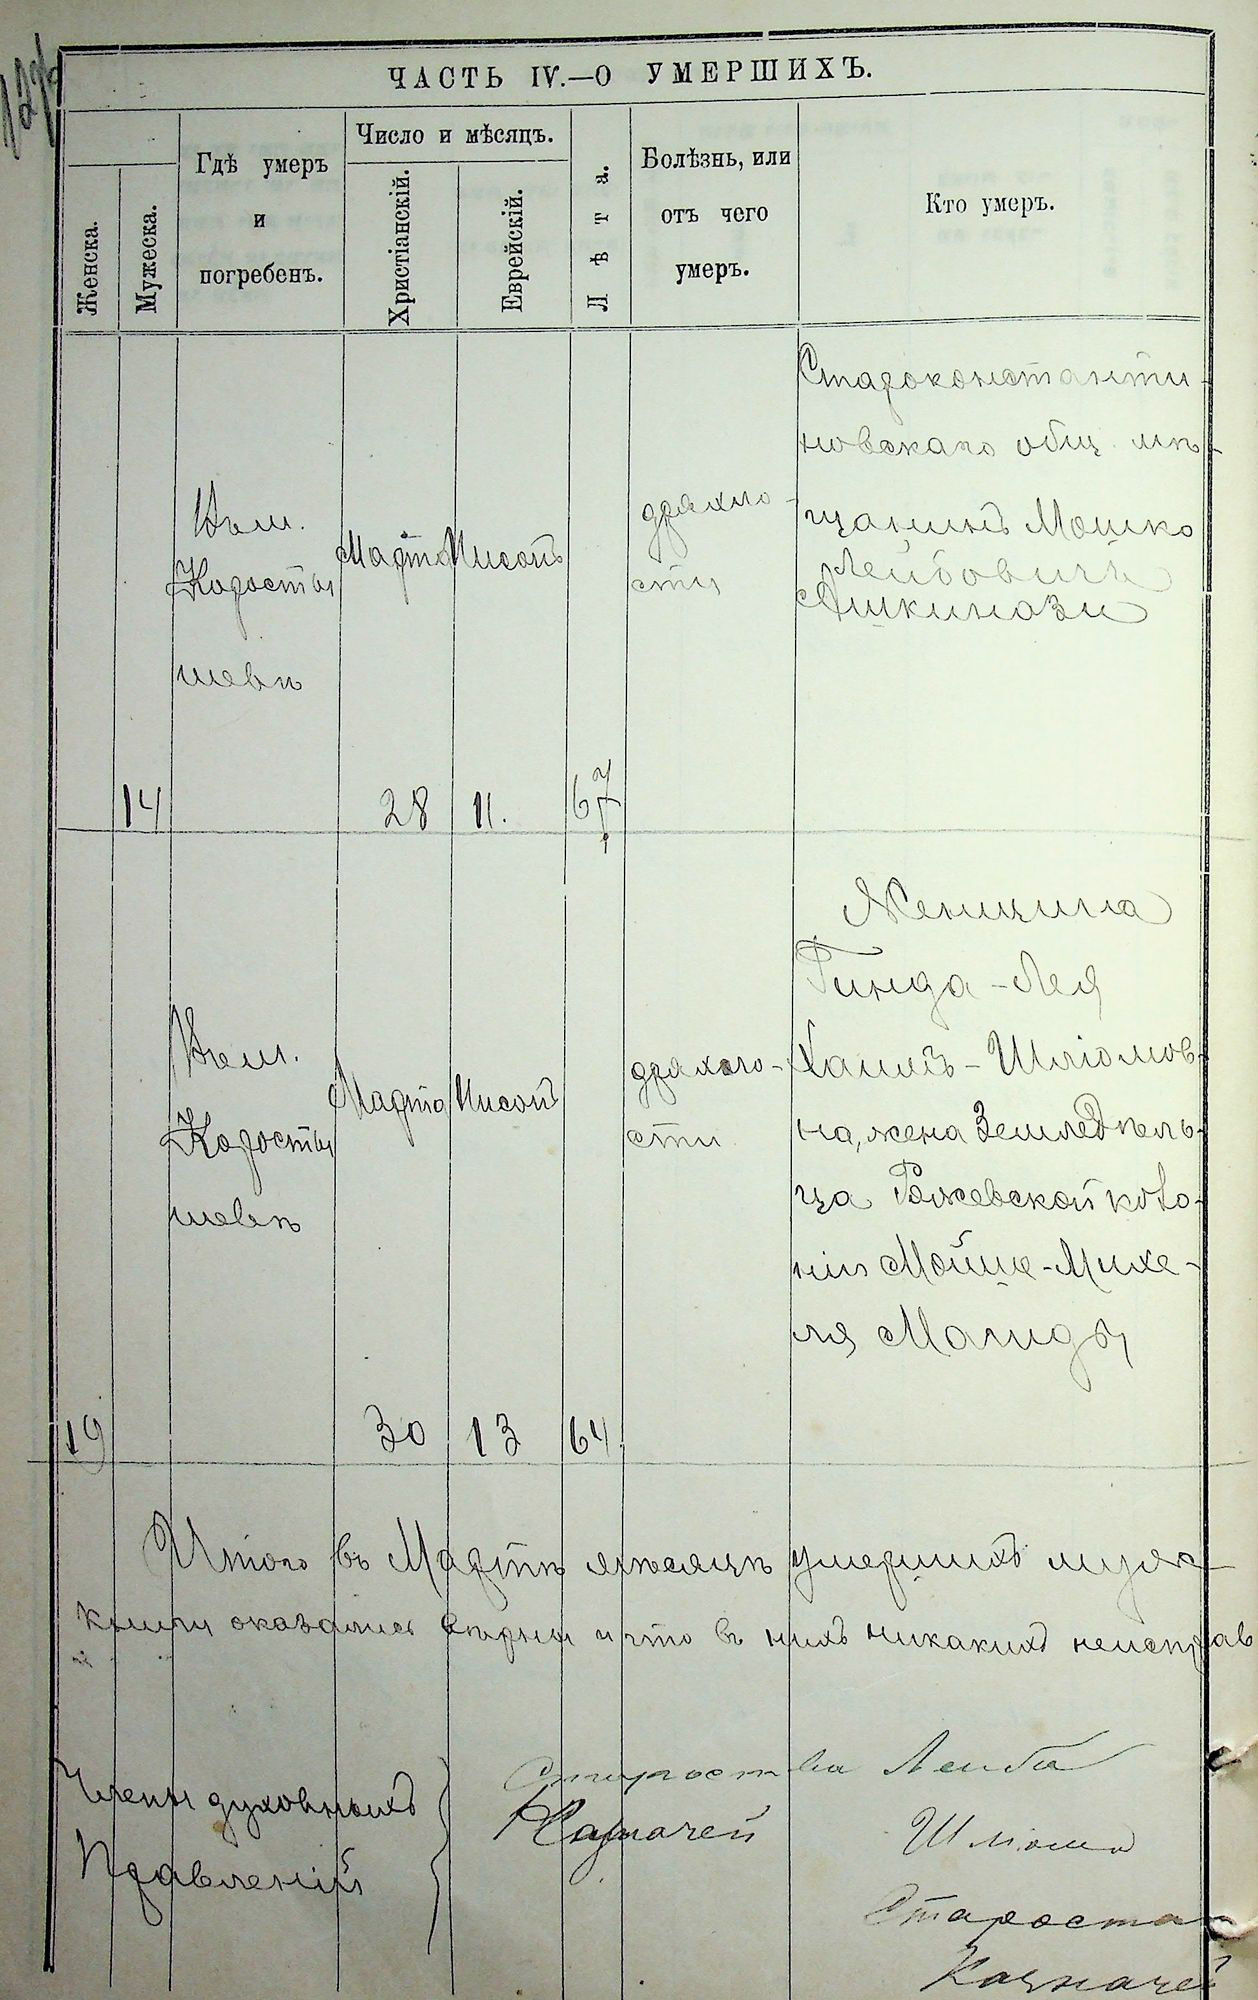 ЧАСТЬ IV.—О УМЕРШИХЪ.
Женска.
Мужеска.
Гдѣ умеръ
и
погребенъ.
Число и мѣсяцъ.
Христіанскій.
Еврейскій.
Лѣта.
Болѣзнь, или
отъ чего
умеръ.
Кто умеръ.
14
Въ м.
Коросты
шевѣ
Марта
28
Нисонъ
11.
67
дряхло-
сти
Староконстанти-
новскаго общ. мѣ-
щанинъ Мошко
Лейбовичъ
Ашкинази
19
Въ м.
Коросты
шевѣ
Марта
30
Нисонъ
13
64
дряхло-
сти
Женщина
Гинда-Лея
Хаимъ-Шліомов-
на, жена Земледѣль-
ца Рожевской коло-
ніи Мойше-Михе-
ля
Итого въ Мартѣ мѣсяцѣ умершихъ муж
книги оказались вѣрны и что въ нихъ никакихъ неисправ
Члены духовныхъ
Правленій
Староства Лейба
Казначей
Шліома
Староста
Казначей